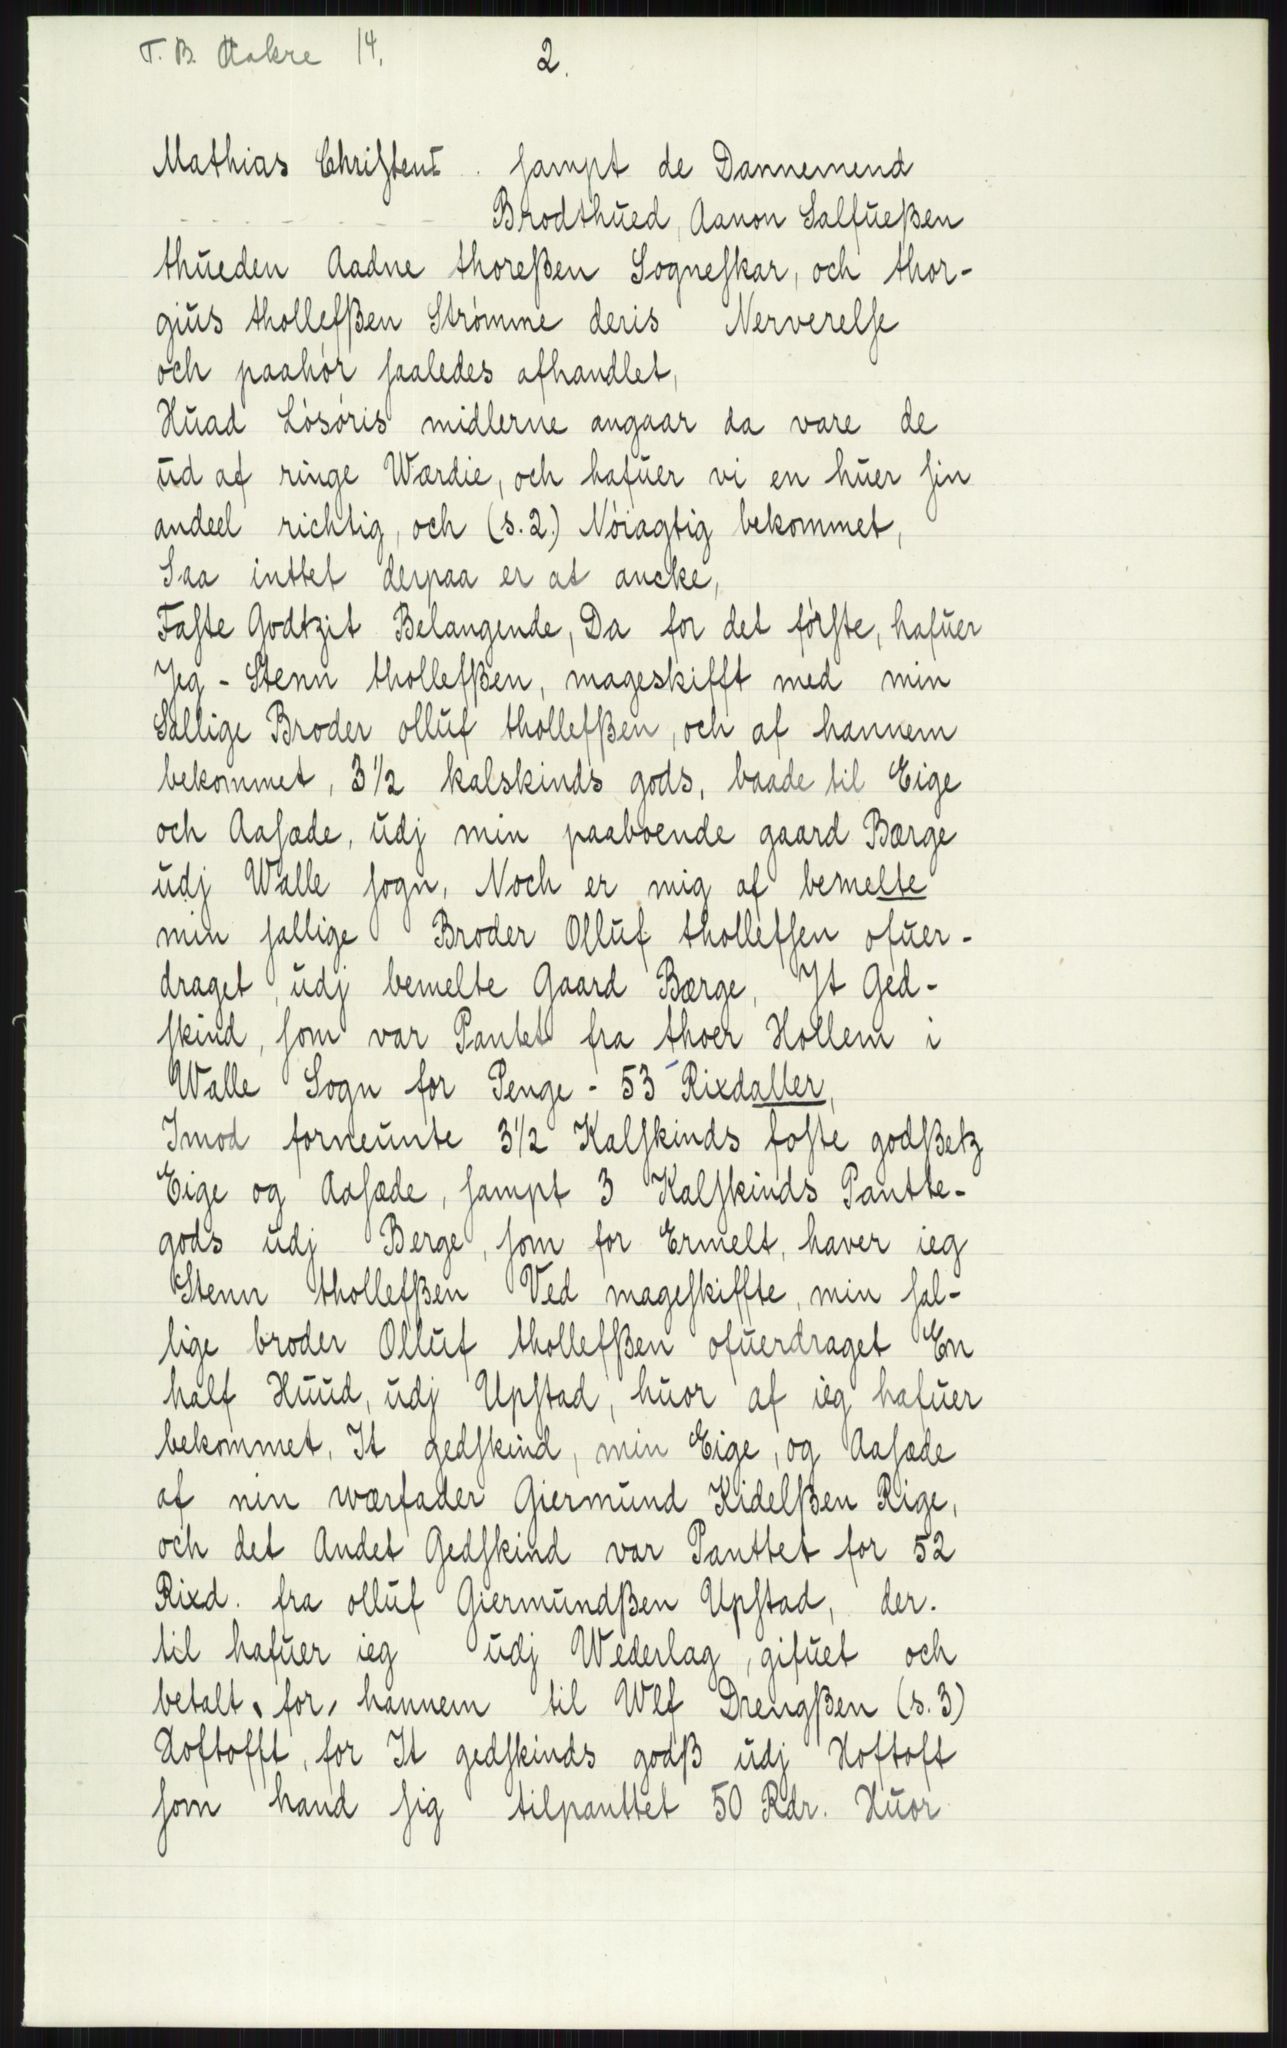 T. B. Aakre 14.
2.
Mathias Christens . sampt de Dannemend
Brodthued, Aanon Salfueßen
thueden Aadne thoreßen Sogneskar, och thor-
gius thollefßen Strømme deris Nerverelse
och paahør saaledes afhandlet,
Huad Løsøris midlerne angaar da vare de
ud af ringe Wærdie, och hafuer vi en huer sin
andeel richtig, och (s. 2.) Nøiagtig bekommet,
Saa inttet derpaa er at ancke,
Faste Godtzit Belangende, Da for det første, hafuer
Jeg - Stenn thollefßen, mageskifft med min
Sallige Broder olluf thollefßen, och af hannem
bekommet, 3 1/2 kalskinds gods, baade til Eige
och Aasæde, udj min paaboende gaard Bærge
udj Walle sogn, Noch er mig af bemelte
min sallige Broder Olluf thollefsen ofuer-
draget, udj bemelte Gaard Bærge, It Ged-
skind, som var Pantet fra thoer Hollem i
Walle Sogn for Penge - 53 Rixdaller,
Imod forneunte 3 1/2 Kalskinds faste godßetz
Eige og Aasæde, sampt 3 Kalskinds Pantte-
gods udj Berge, som for Ermelt, haver ieg
Stenn thollefßen Ved mageskiffte, min sal-
lige broder Olluf thollefßen ofuerdraget En
half Huud, udj Upstad, huor af ieg hafuer
bekommet, It gedskind, min Eige, og Aasæde
af nin wærfader Giermund Kidelßen Rige,
och det Andet Gedskind var Panttet for 52
Rixd. fra olluf Giermundßen Upstad, der.
til hafuer ieg udj Wederlag, gifuet och
betalt, for, hannem til Wlf Drengßen (s. 3)
Hoftofft, for It gedskinds godß udj Hoftoft
som hand sig tilpanttet 50 Rdr. Huor